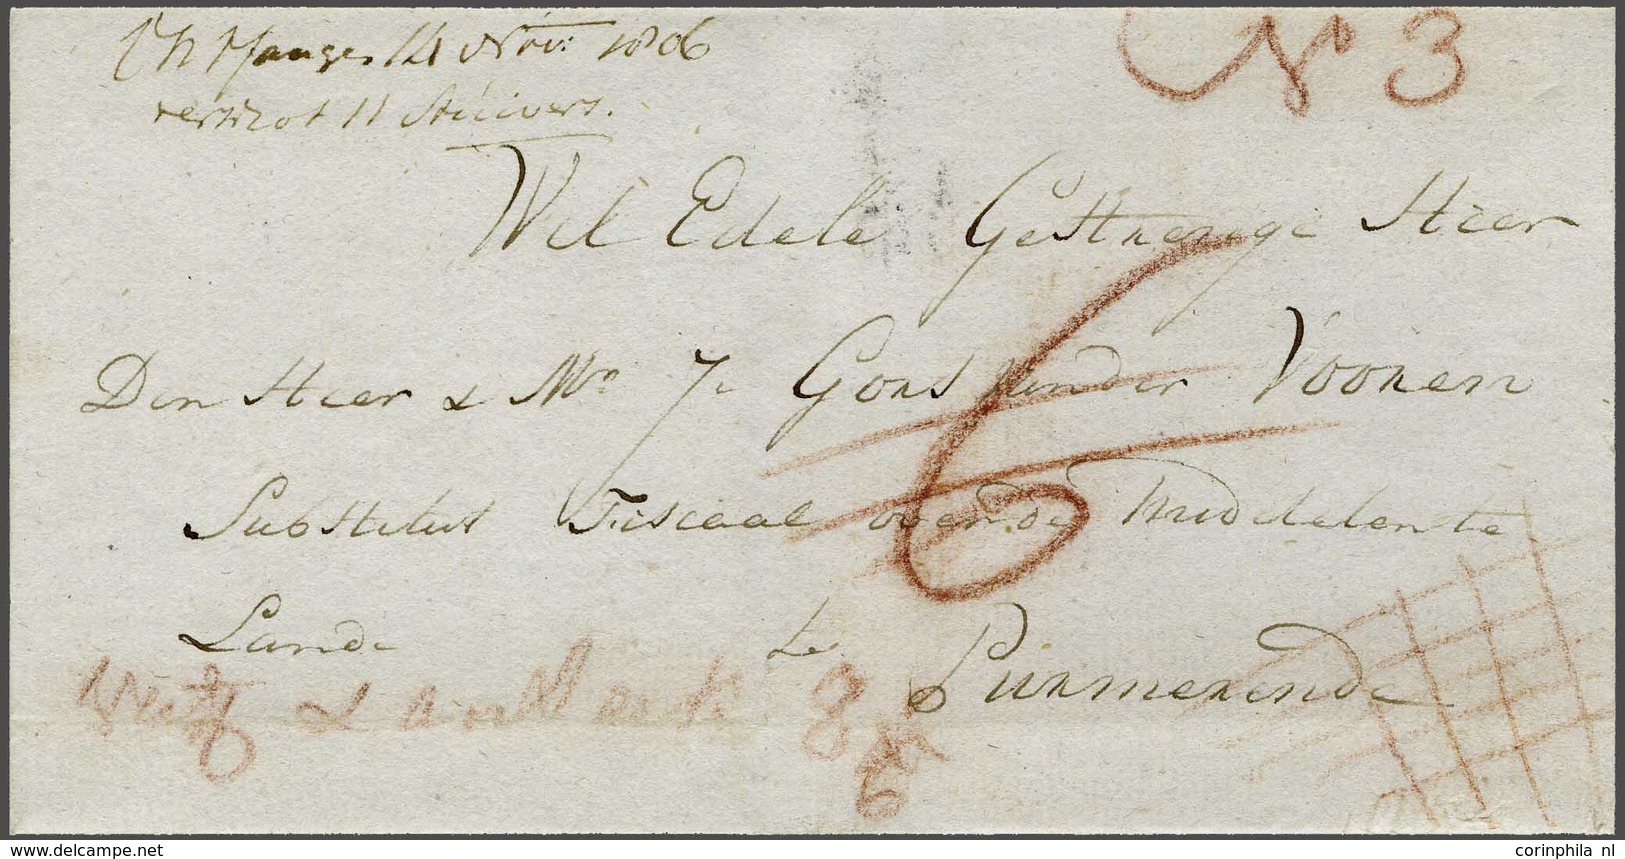 Ontfangen 14 Nov: 1806
verschot 11 Stuivers.
No 3
Wel Edele Gestrenge Heer
Den Heer & Mr J: Gons vander Vooren
Substitut Fiscaal over de Middelen te
Lande te Purmerende
6
3
6
www.delcampe.net
corinphila nl